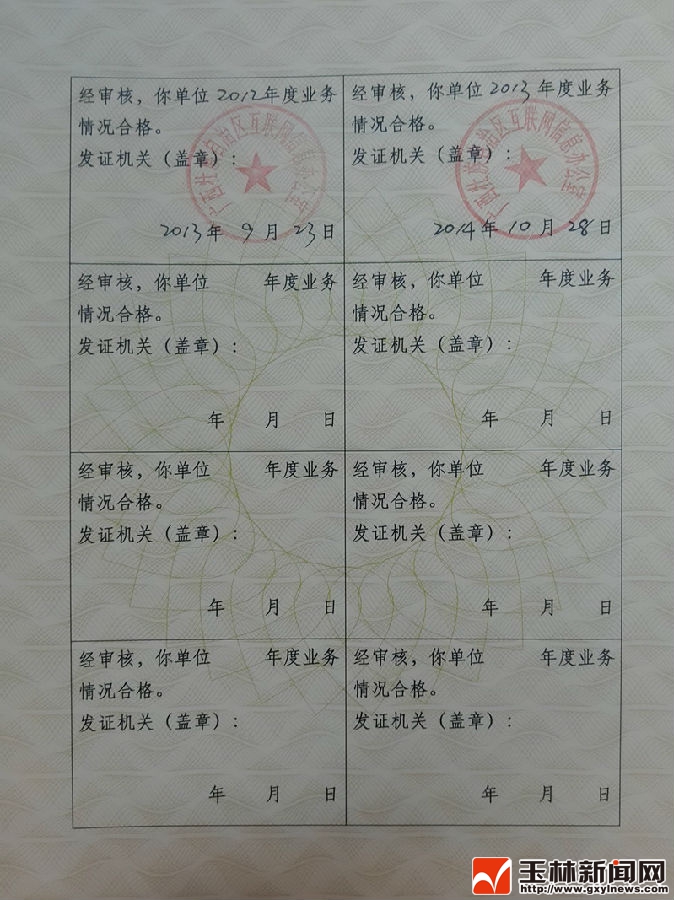 经审核，你单位2012年度业务
情况合格。
发证机关（盖章）：
广西壮族自治区互联网信息办公室
2013年 9月 23日
经审核，你单位2013年度业务
情况合格。
发证机关（盖章）：
广西壮族自治区互联网信息办公室
2014年 10月 28日
经审核，你单位 年度业务
情况合格。
发证机关（盖章）：
年 月 日
经审核，你单位 年度业务
情况合格。
发证机关（盖章）：
年 月 日
经审核，你单位 年度业务
情况合格。
发证机关（盖章）：
年 月 日
经审核，你单位 年度业务
情况合格。
发证机关（盖章）：
年 月 日
经审核，你单位 年度业务
情况合格。
发证机关（盖章）：
年 月 日
经审核，你单位 年度业务
情况合格。
发证机关（盖章）：
年 月 日
玉林新闻网
http://www.gxylnews.com